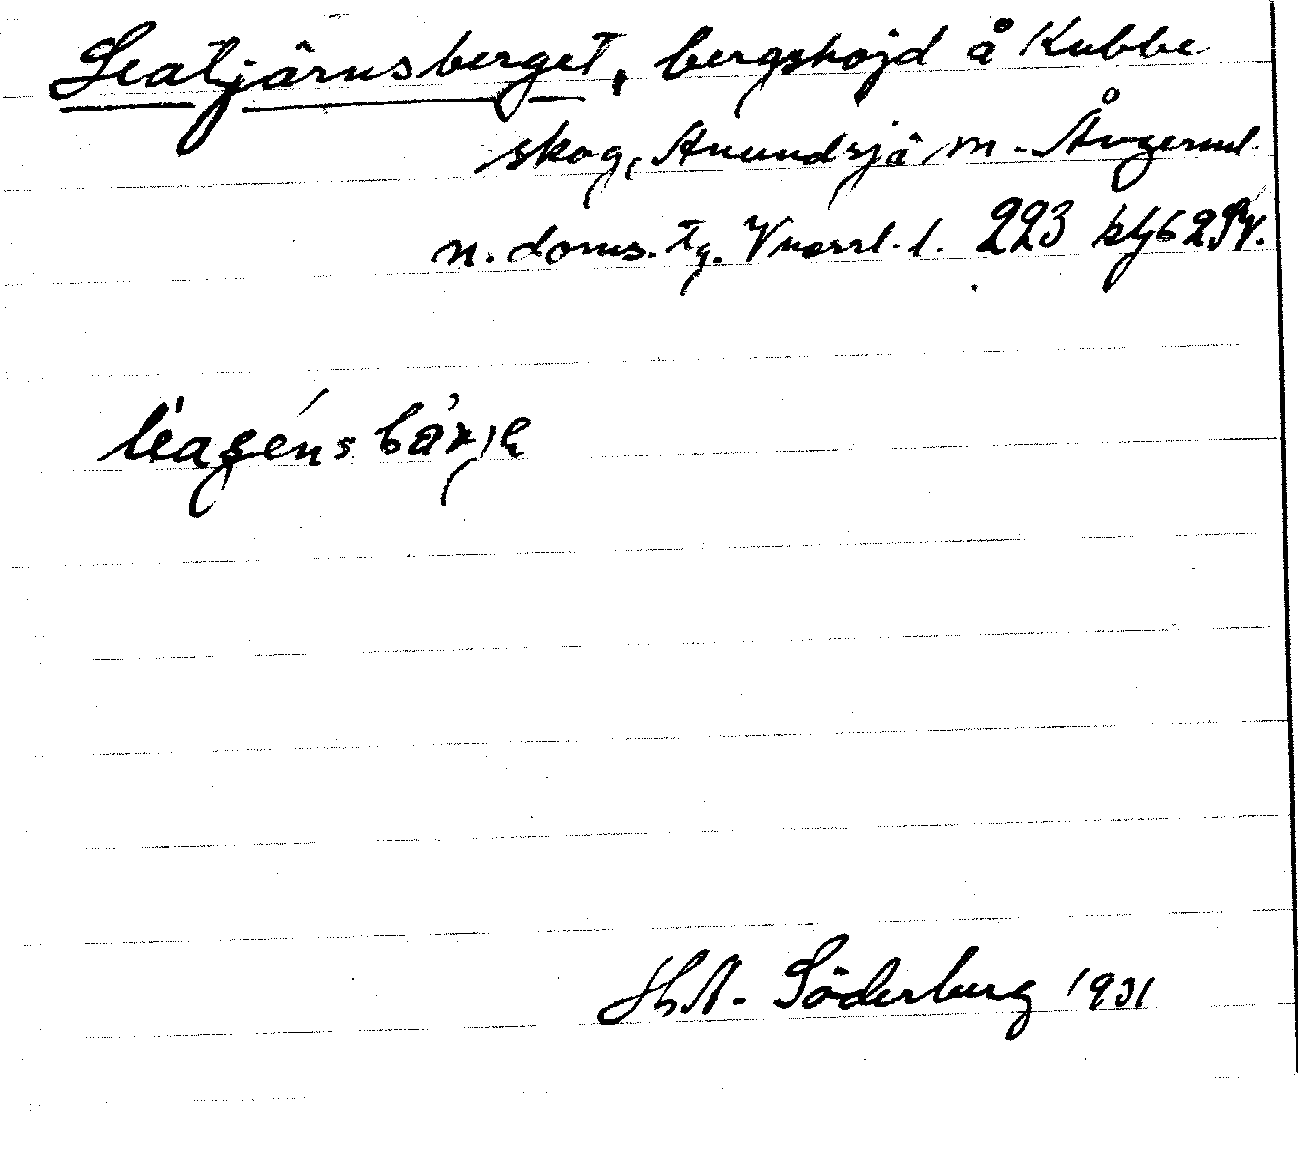 Leatjärnsberget, bergshöjd å Kubbe
skog, Anundsjö sn. Ångerml.
n. doms. tg. Vnorrl. l. 223
H. A. Söderberg 1931